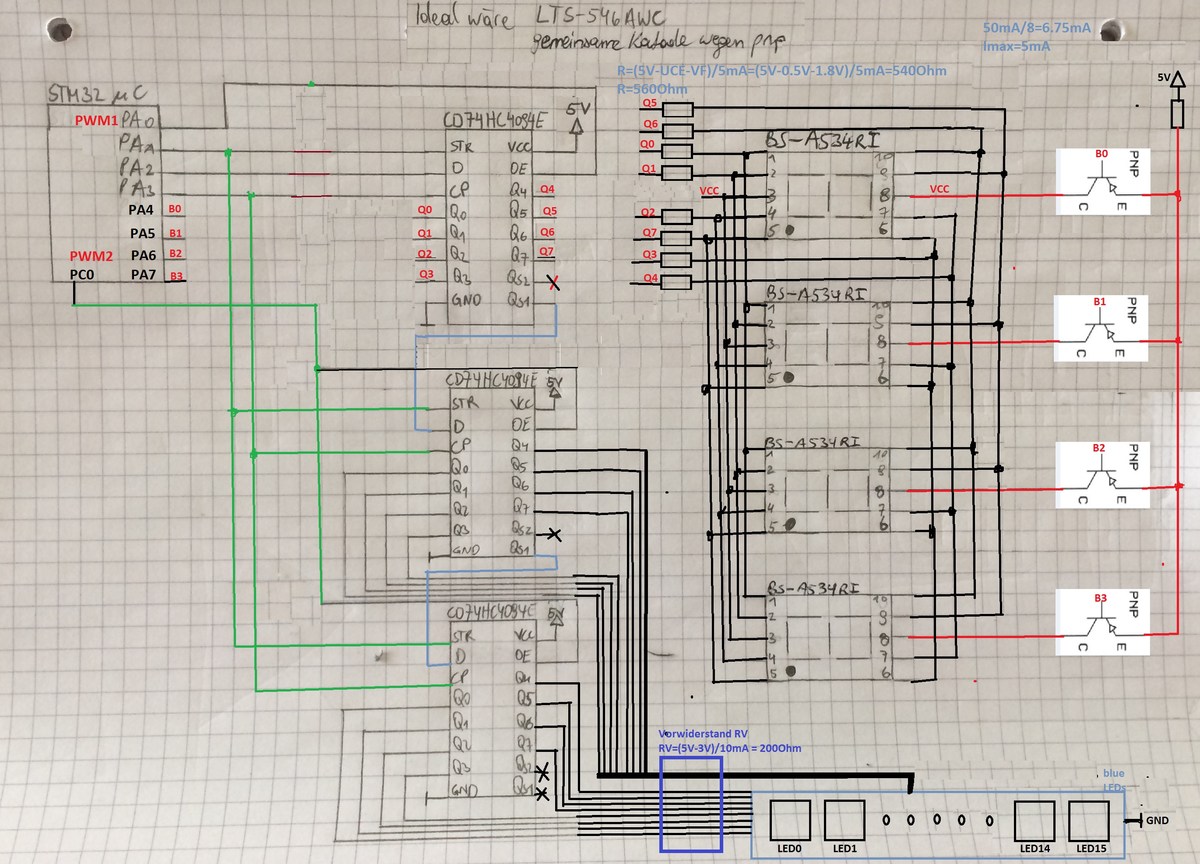 Ideal wäre LTS-546AWC
gemeinsame Katode wegen pnp
50mA/8=6.75mA
Imax=5mA
R=(5V-UCE-VF)/5mA=(5V-0.5V-1.8V)/5mA=540Ohm
R=560Ohm
STM32 µC
PWM1 PA0
PA1
PA2
PA3
PA4 B0
PA5 B1
PWM2 PA6 B2
PC0 PA7 B3
CD74HC4094E
5V
STR VCC
D OE
CP Q4 Q4
Q0 Q0 Q5 Q5
Q1 Q1 Q6 Q6
Q2 Q2 Q7 Q7
Q3 Q3 QS2
GND QS1
CD74HC4094E
5V
STR VCC
D OE
CP Q4
Q0 Q5
Q1 Q6
Q2 Q7
Q3 QS2
GND QS1
CD74HC4094E
5V
STR VCC
D OE
CP Q4
Q0 Q5
Q1 Q6
Q2 Q7
Q3 QS2
GND QS1
Q5
Q6
Q0
Q1
VCC
Q2
Q7
Q3
Q4
BS-A534RI
1 10
2 9
3 8 VCC
4 7
5 6
BS-A534RI
1 10
2 9
3 8
4 7
5 6
BS-A534RI
1 10
2 9
3 8
4 7
5 6
BS-A534RI
1 10
2 9
3 8
4 7
5 6
5V
B0 PNP
C E
B1 PNP
C E
B2 PNP
C E
B3 PNP
C E
Vorwiderstand RV
RV=(5V-3V)/10mA = 200Ohm
blue
LEDs
GND
LED0 LED1 LED14 LED15